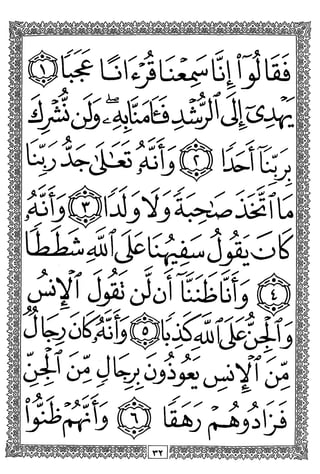 فَقَالُوٓا۟ إِنَّا سَمِعْنَا قُرْءَانًا عَجَبًا ١
يَهْدِىٓ إِلَى ٱلرُّشْدِ فَـَٔامَنَّا بِهِۦ ۖ وَلَن نُّشْرِكَ
بِرَبِّنَآ أَحَدًا ٢ وَأَنَّهُۥ تَعَٰلَىٰ جَدُّ رَبِّنَا
مَا ٱتَّخَذَ صَٰحِبَةً وَلَا وَلَدًا ٣ وَأَنَّهُۥ
كَانَ يَقُولُ سَفِيهُنَا عَلَى ٱللَّهِ شَطَطًا
٤ وَأَنَّا ظَنَنَّآ أَن لَّن تَقُولَ ٱلْإِنسُ
وَٱلْجِنُّ عَلَى ٱللَّهِ كَذِبًا ٥ وَأَنَّهُۥ كَانَ رِجَالٌ
مِّنَ ٱلْإِنسِ يَعُوذُونَ بِرِجَالٍ مِّنَ ٱلْجِنِّ
فَزَادُوهُمْ رَهَقًا ٦ وَأَنَّهُمْ ظَنُّوا۟
٣٢